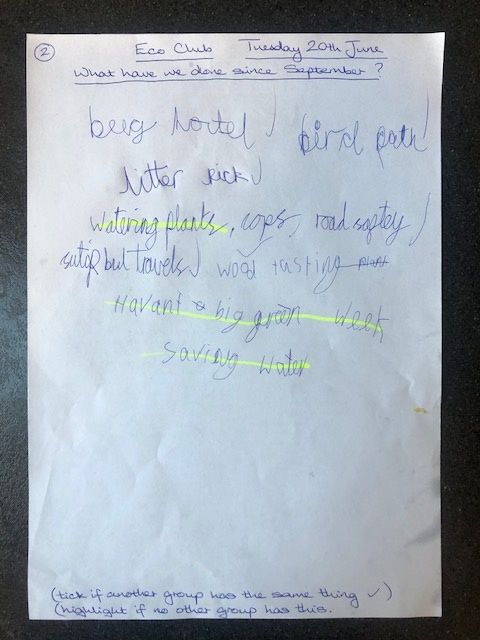 2 Eco Club Tuesday 20th June
What have we done since September?
bug hortel bird path
litter pick
watering plants, cops, road saftey
travels wood tasting
Havant & big green week
saving water
(tick if another group has the same thing ✓)
(highlight if no other group has this.